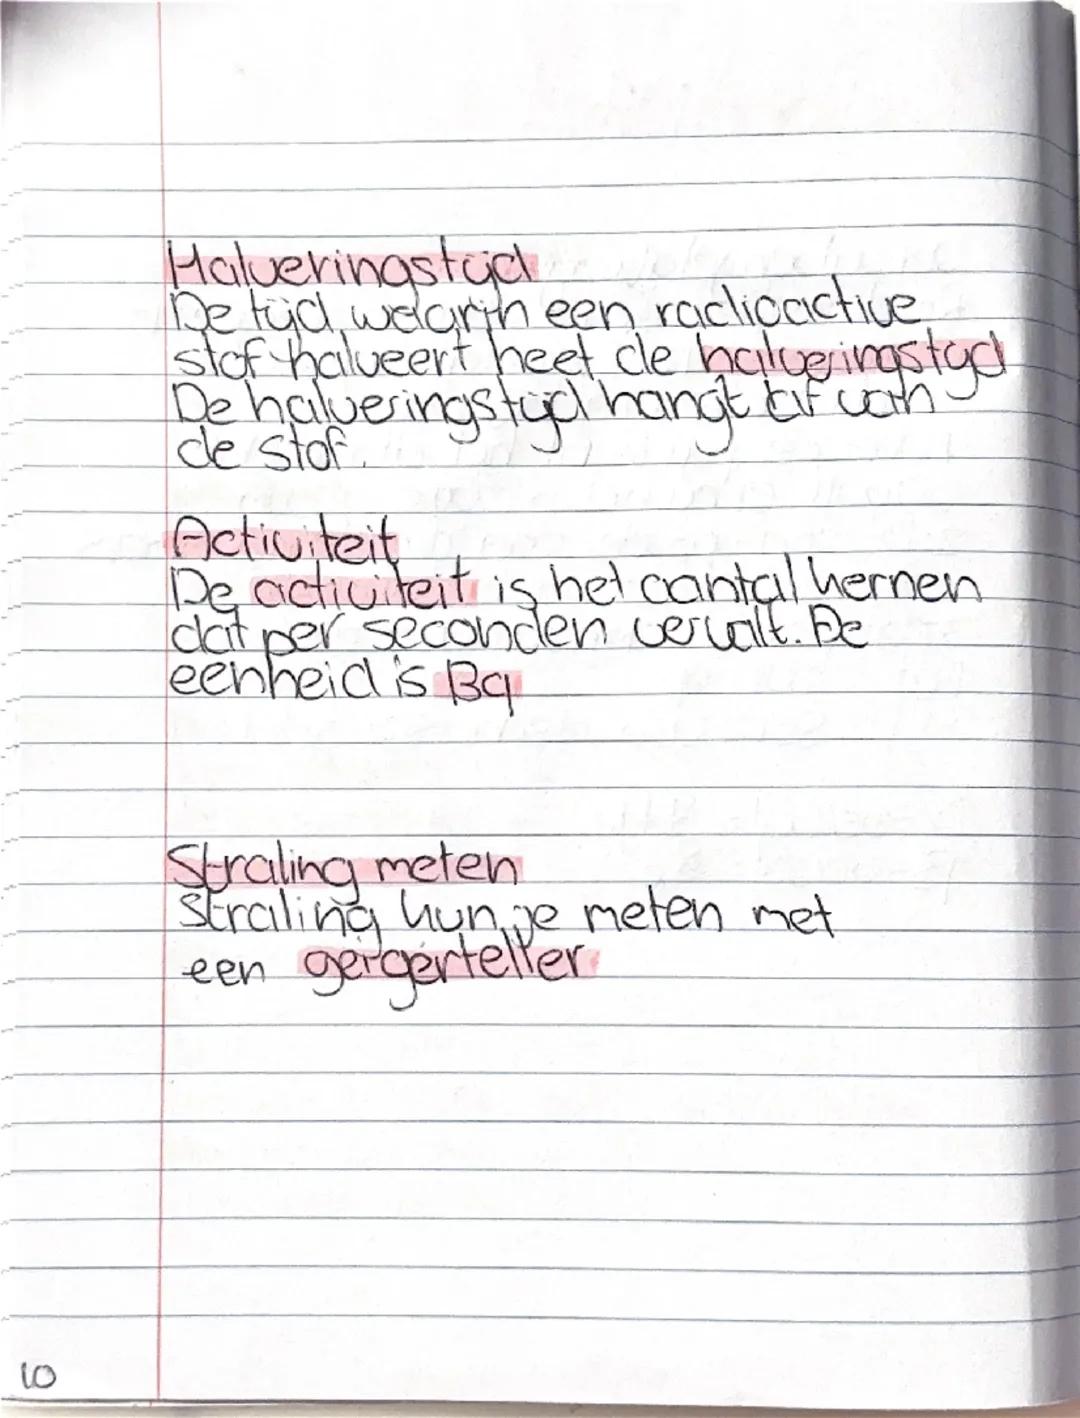 Halveringstijd
De tijd waarin een radioactive
stof halveert heet de halveringstijd
De halveringstijd hangt af van
de stof.
Activiteit
De activiteit is het aantal kernen
dat per seconden vervalt. De
eenheid is Bq
Straling meten
Straling kun je meten met
een geigerteller
10